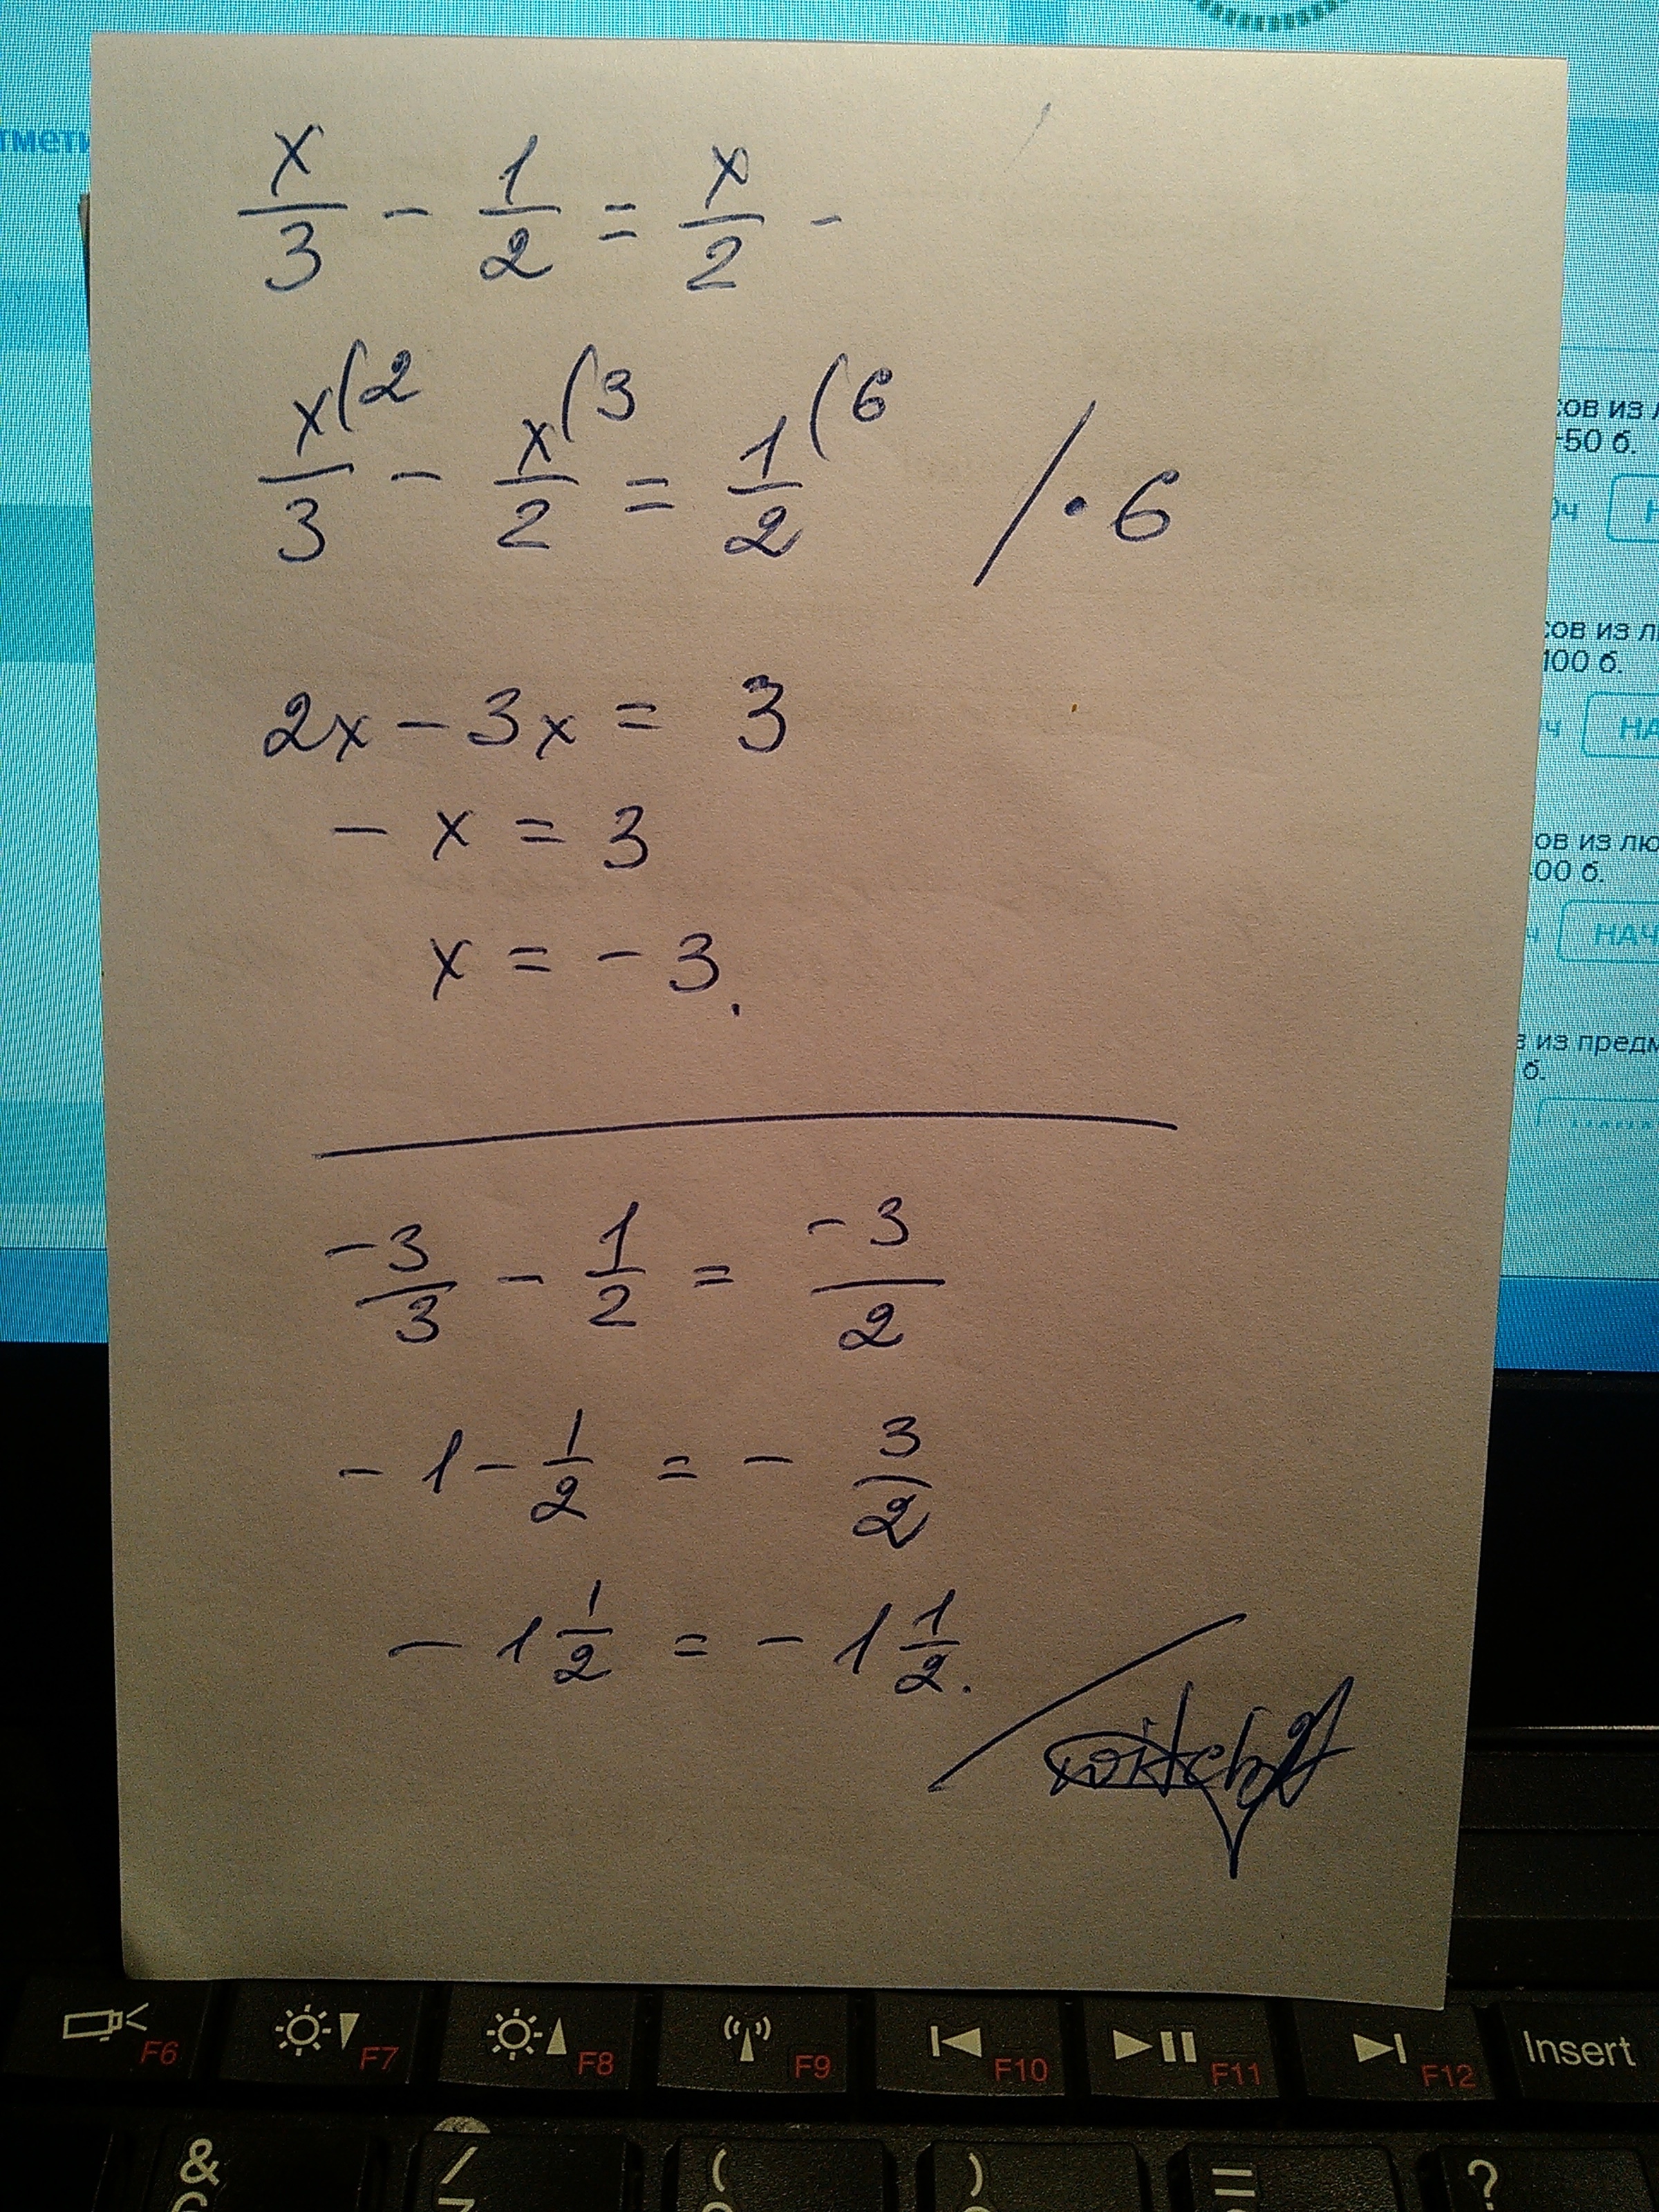 x/3 - 1/2 = x/2 -
x(2/3 - x(3/2 = 1(6/2 / · 6
2x - 3x = 3
- x = 3
x = - 3.
-3/3 - 1/2 = -3/2
- 1 - 1/2 = - 3/2
- 1 1/2 = - 1 1/2.
тметк
сов из л
50 б.
Н
сов из л
100 б.
НА
ов из лю
00 б.
НАЧ
в из предм
б.
F6 F7 F8 F9 F10 F11 F12 Insert
& / ( ) = ?